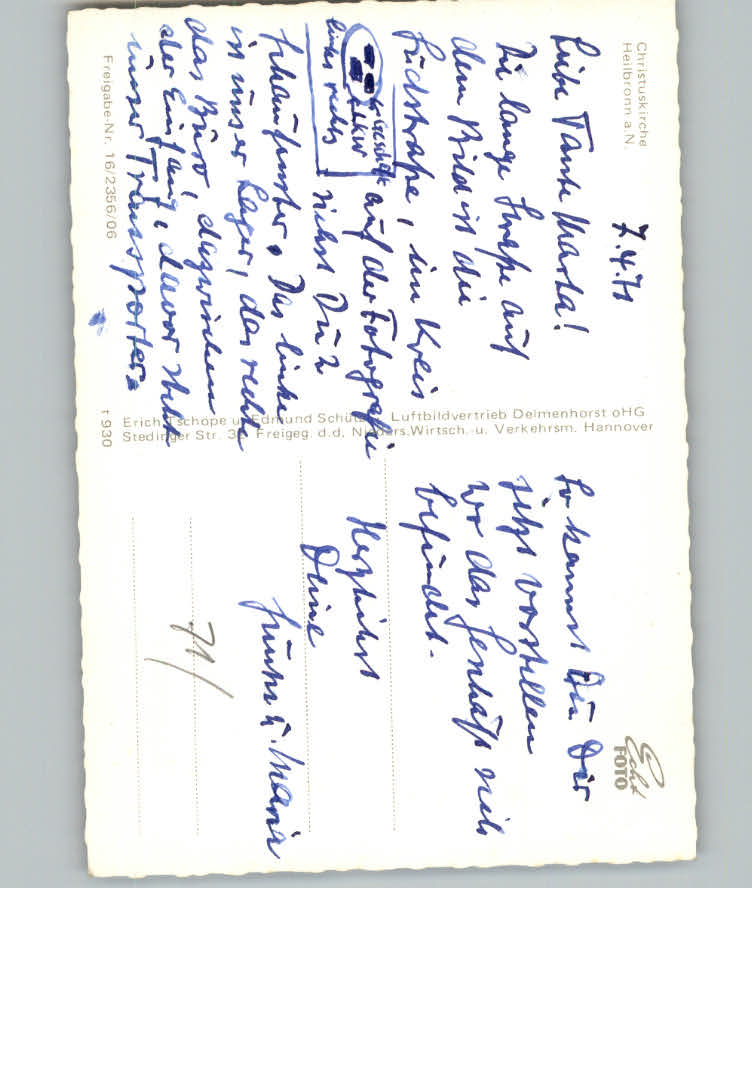 Christuskirche
Heilbronn a. N.
7.4.71
Liebe Tante Marta!
Die lange Straße auf
dem Bild ist die
Südstraße, im Kreis
auf der Fotografie
links rechts
siehst Du 2
Schaufenster. Das linke
ist unser Lager, das rechte
das Büro, dazwischen
der Eingang, davor steht
unser Transporter.
Freigabe-Nr. 16/2356/06
t 930
Erich Tschöpe u. Edmund Schütze, Luftbildvertrieb Delmenhorst oHG
Stedinger Str. Freigeg. d.d. Nieders. Wirtsch.- u. Verkehrsm. Hannover
Echt
FOTO
So kannst Du Dir
jetzt vorstellen
wo das Geschäft sich
befindet.
Herzlichst
Deine
u. Maria
71/